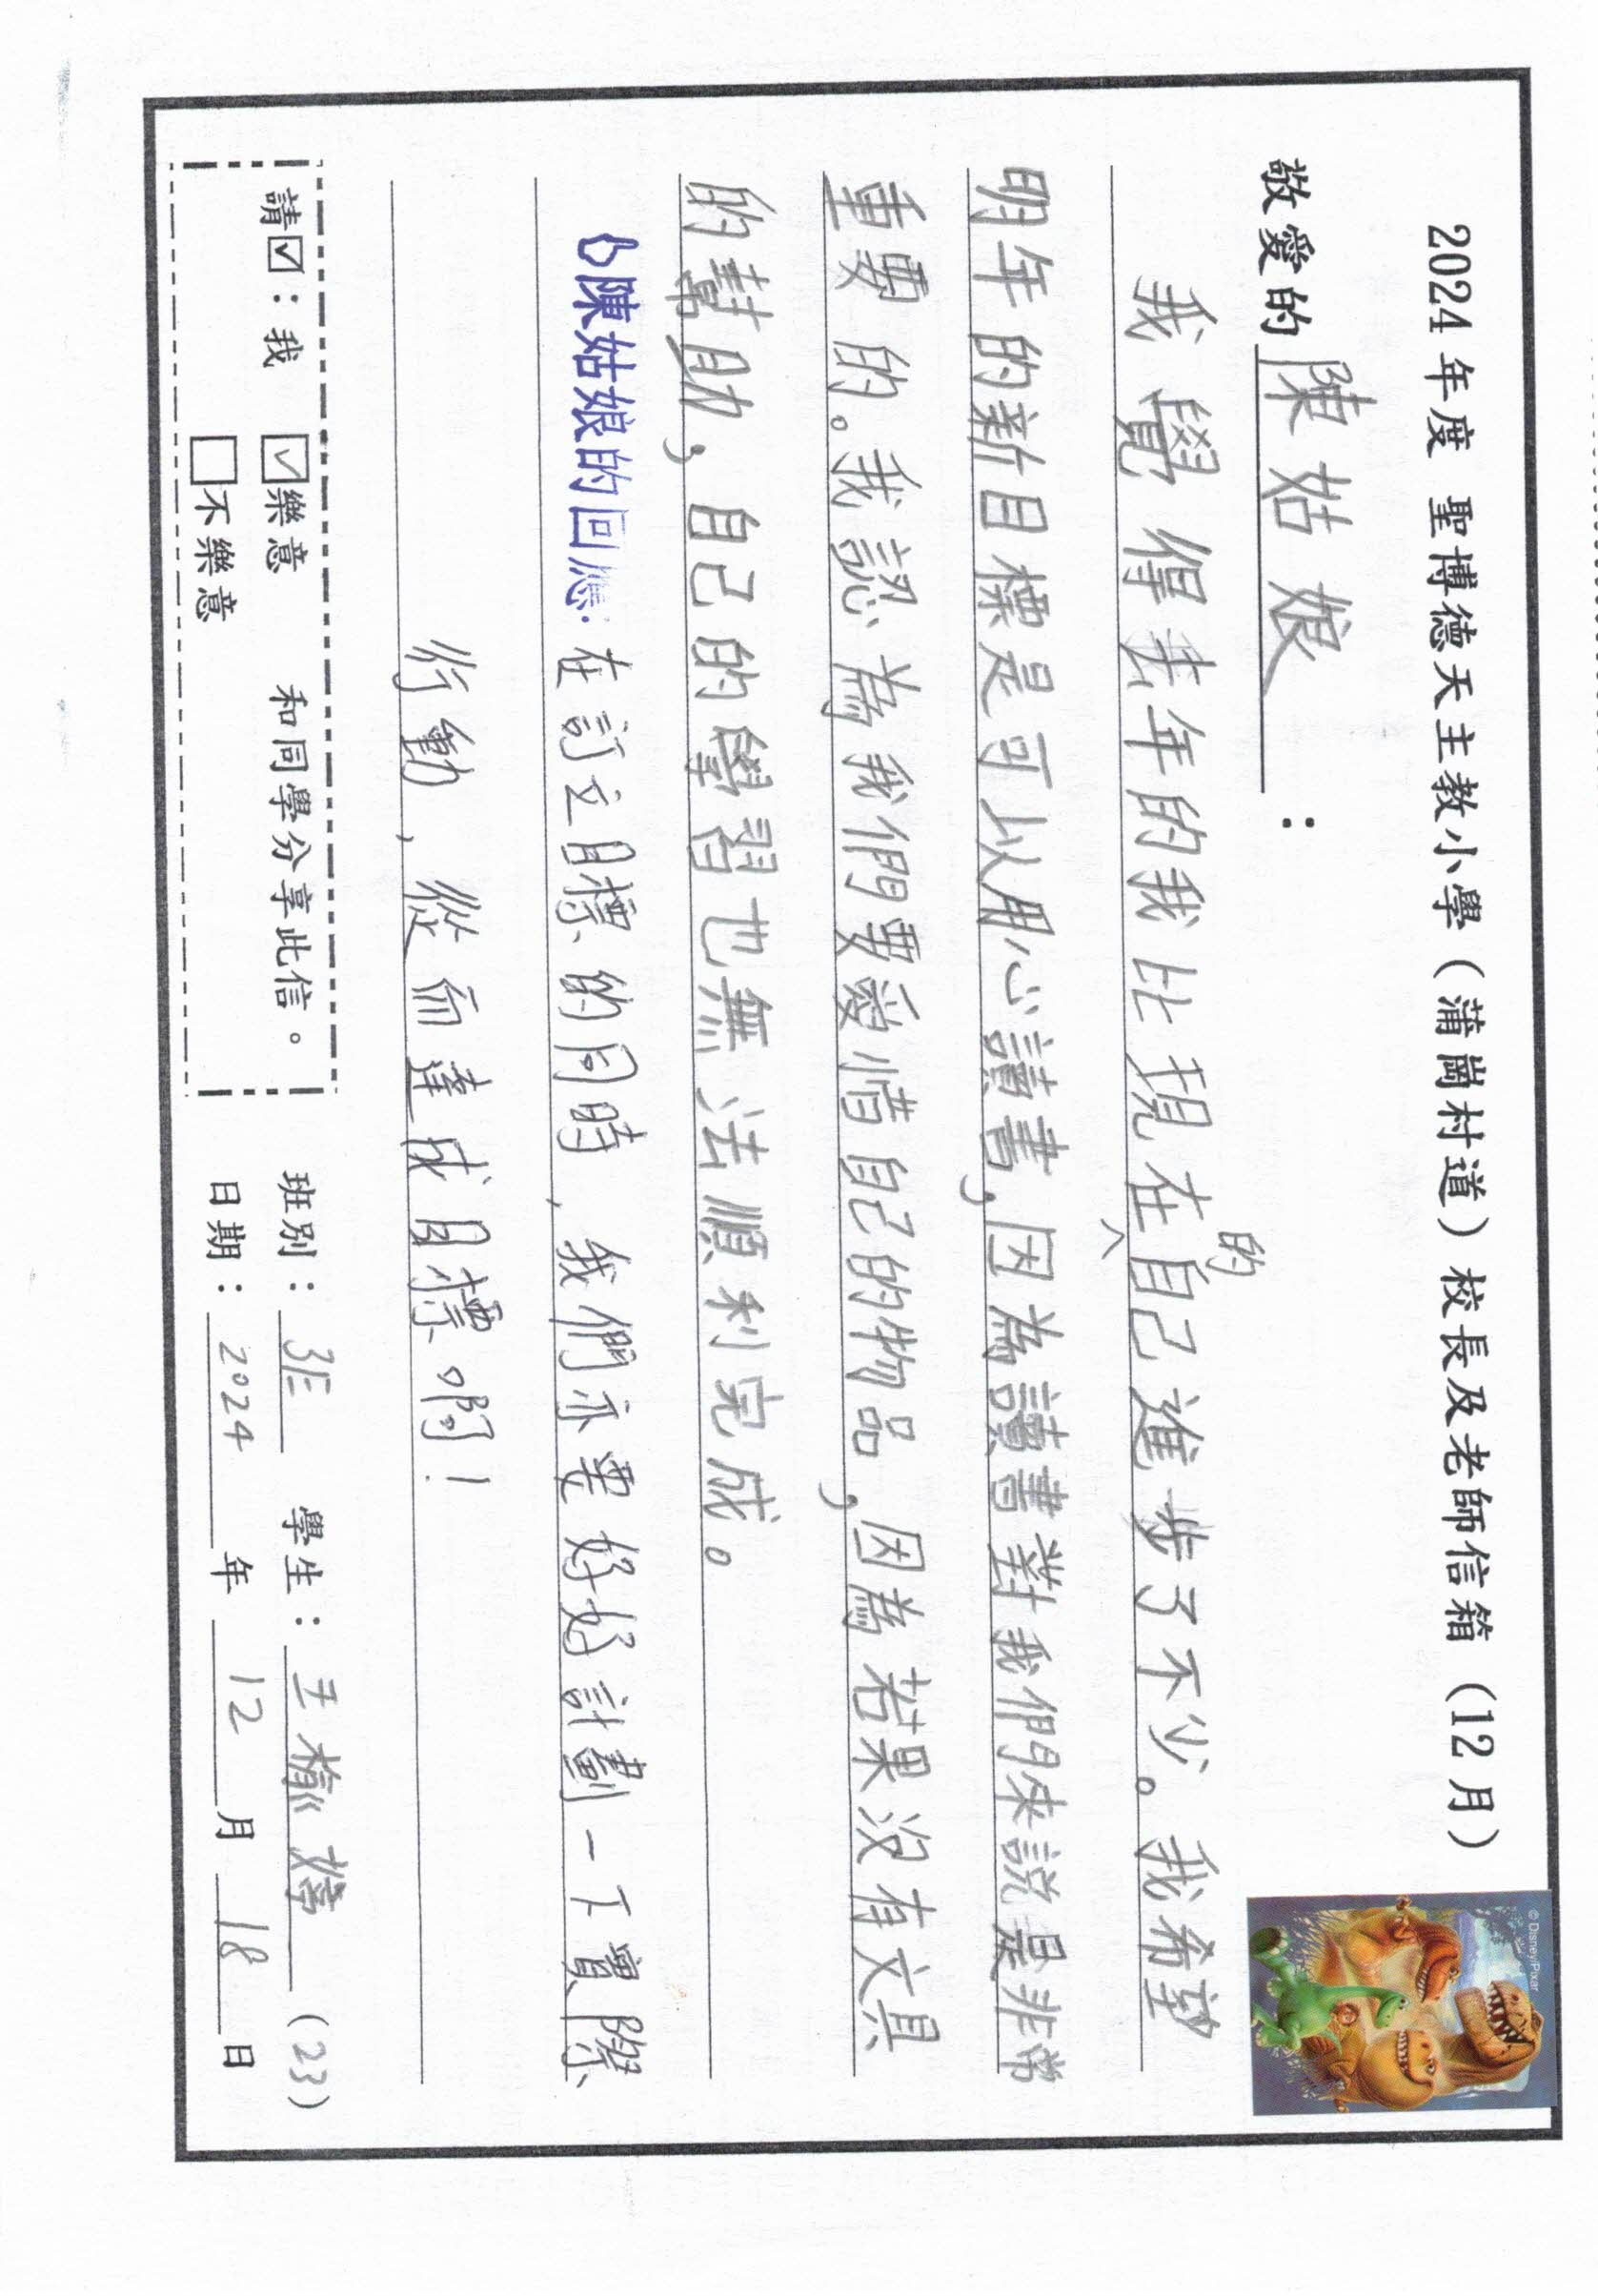 2024 年度 聖博德天主教小學（蒲崗村道）校長及老師信箱（12 月）
© Disney/Pixar
敬愛的 陳姑娘 ：
我覺得去年的我比現在的自己進步了不少。我希望
明年的新目標是可以用心讀書，因為讀書對我們來説是非常
重要的。我認為我們要愛惜自己的物品，因為若果沒有文具
的幫助，自己的學習也無法順利完成。
陳姑娘的回應：在訂立目標的同時，我們亦要好好計劃一下實際
行動，從而達成目標啊！
請☑：我 ☑樂意 和同學分享此信。
□不樂意
班別：3E 學生：王榆婷 (23)
日期：2024 年 12 月 18 日